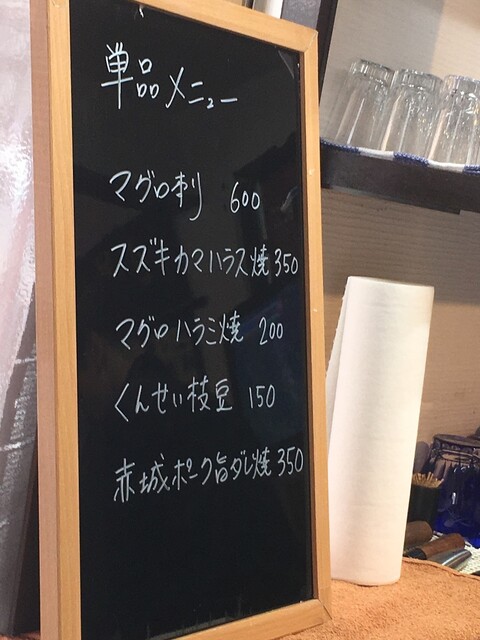 単品メニュー
マグロ刺 600
スズキカマハラス焼 350
マグロハラミ焼 200
くんせい枝豆 150
赤城ポーク旨ダレ焼 350